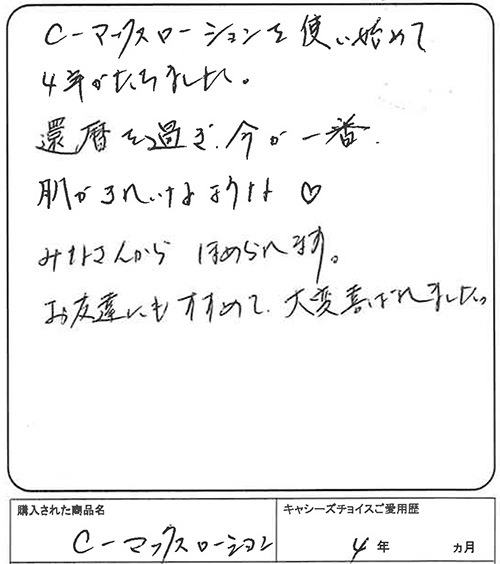 C-マックスローションを使い始めて
4年がたちました。
還暦を過ぎ、今が一番、
肌がきれいなような♡
みなさんから ほめられます。
お友達にもすすめて、大変喜ばれました。
購入された商品名
C-マックスローション
キャシーズチョイスご愛用歴
4年 ヵ月